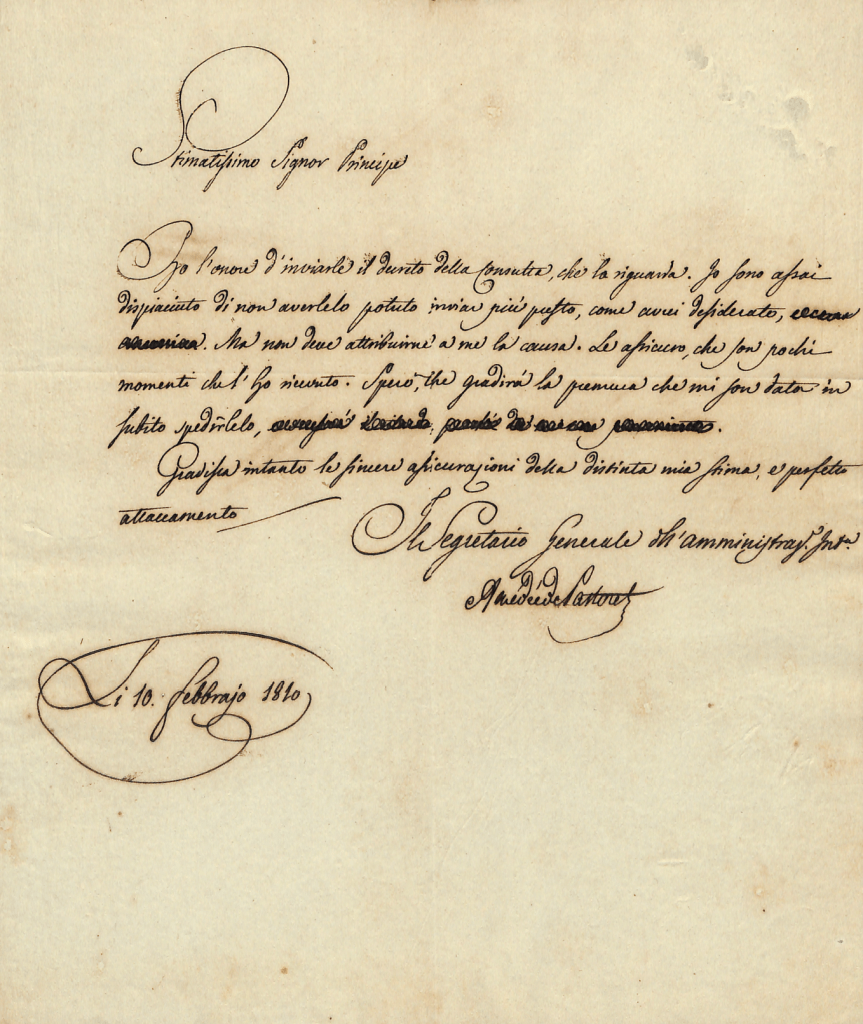 Stimatissimo Signor Principe
Ho l'onore d'inviarle il decreto della Consulta, che la riguarda. Io sono assai
dispiaciuto di non averlelo potuto inviar più presto, come avrei desiderato,
. Ma non deve attribuirne a me la causa. Le assicuro, che son pochi
momenti che l'ho ricevuto. Spero, che gradirà la premura che mi son data in
subito spedirlelo,
Gradisca intanto le sincere assicurazioni della distinta mia stima, e perfetto
attaccamento
Il Segretario Generale dell'amministraz.e Int.a
Amédée de Pastoret
Li 10. febbrajo 1810